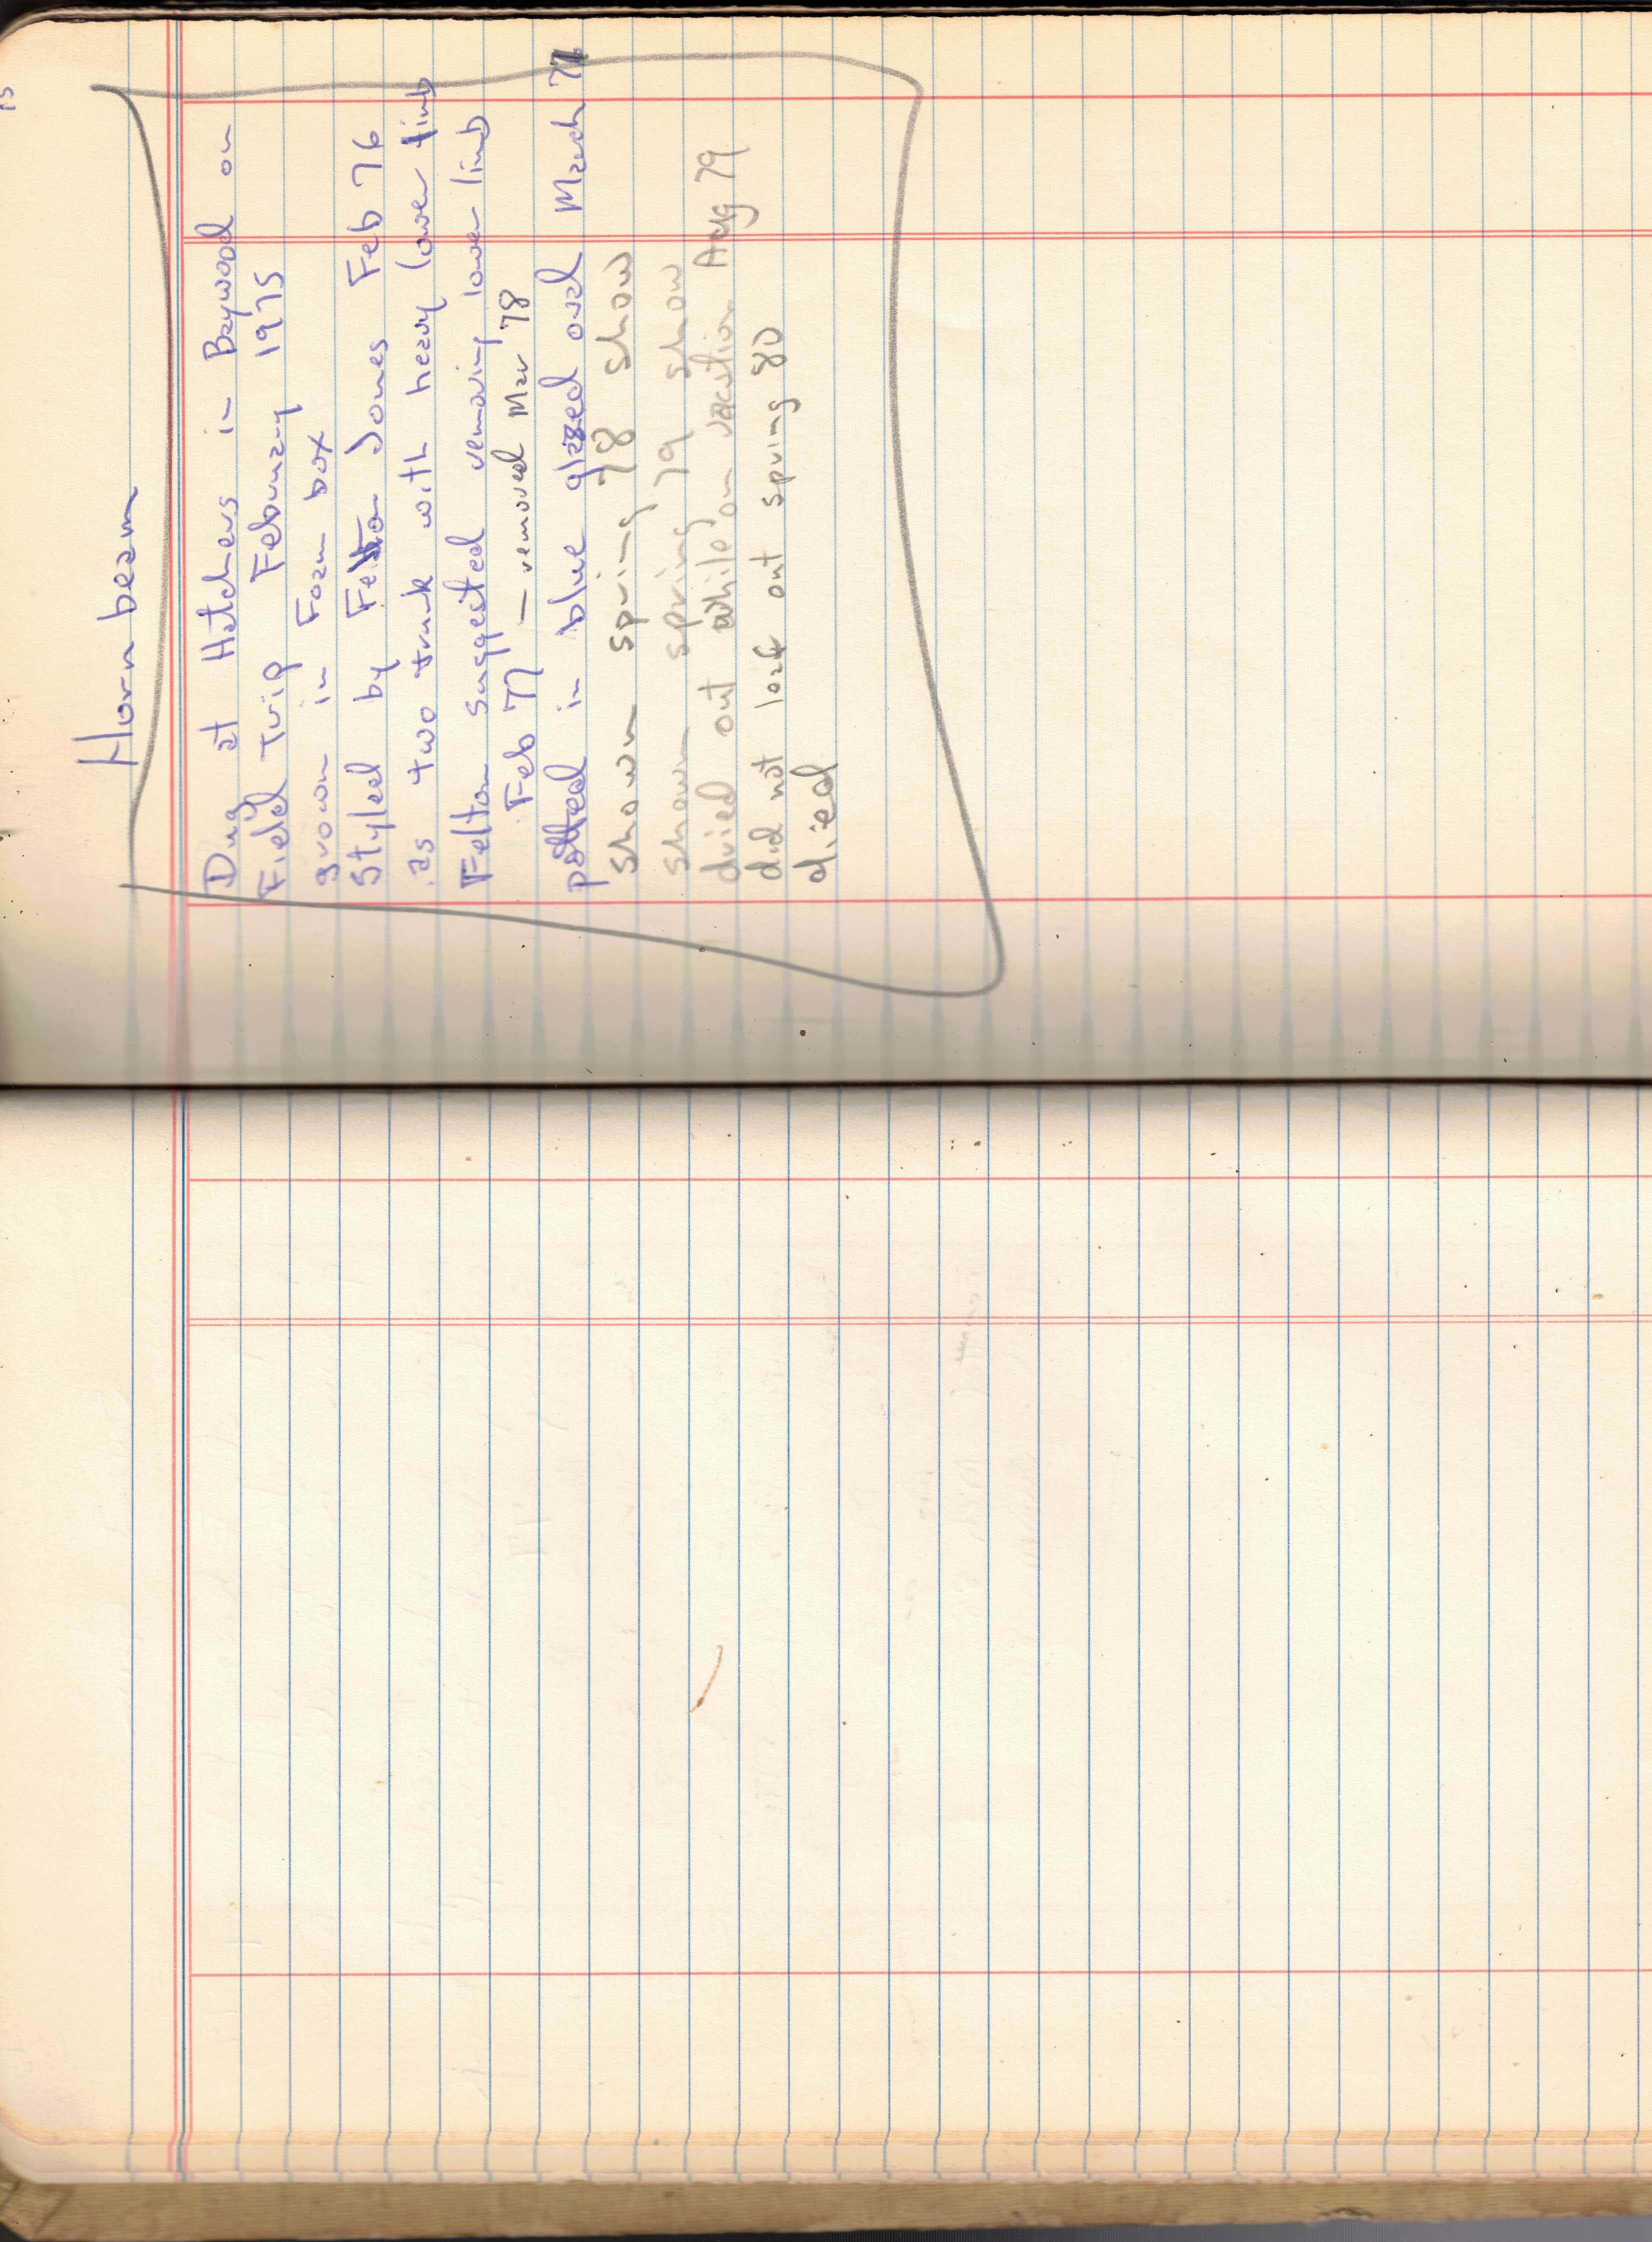 15
Horn beam
Dug at Hatchers in Baywood on
Field Trip February 1975
grown in Foam box
Styled by Felton Jones Feb 76
as two trunk with heavy lower limb
Felton suggested removing lower limb
Feb 77 – removed Mar 78
potted in blue glazed oval March 77
shown spring 78 show
shown spring 79 show
dried out while on vacation Aug 79
did not leaf out spring 80
died